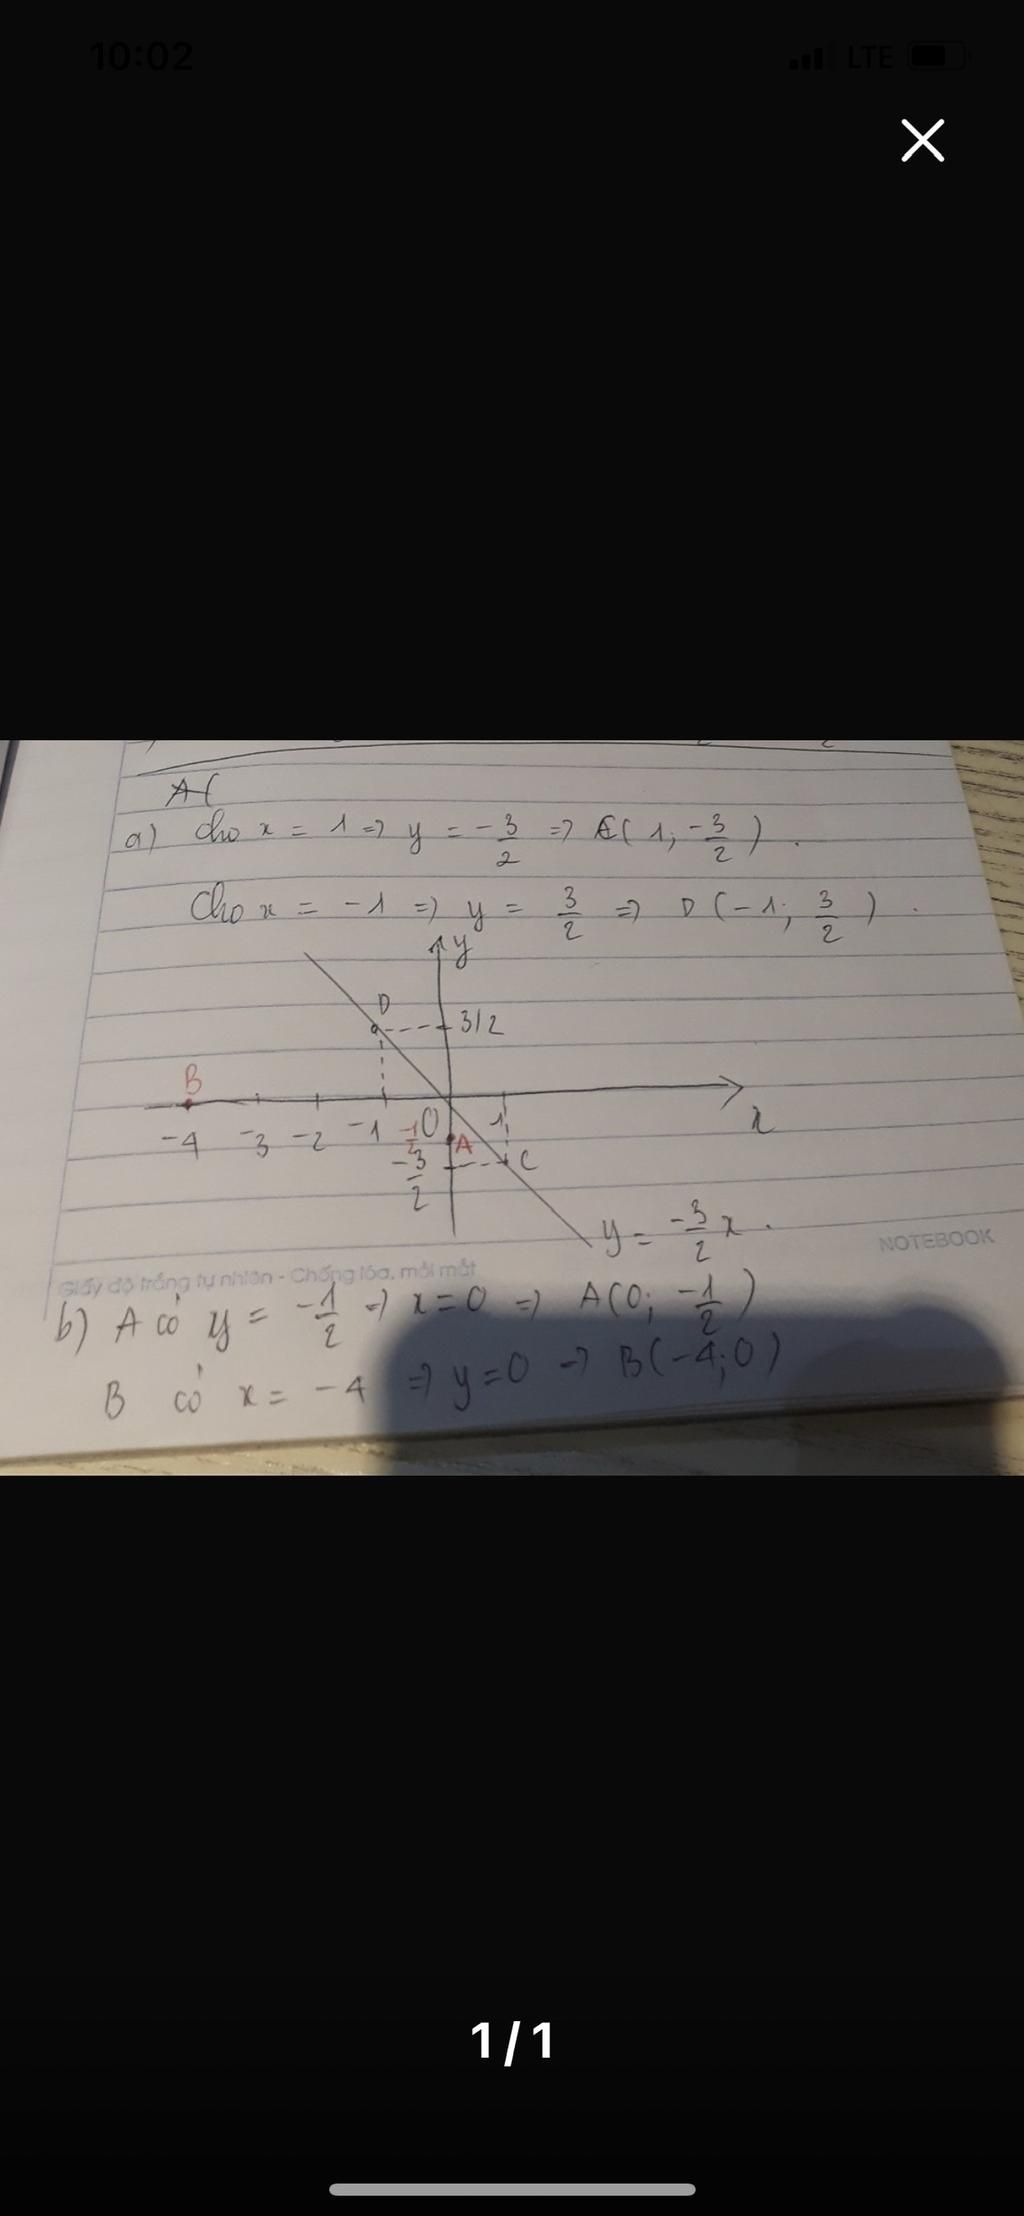 10:02
LTE
A(
a) Cho x = 1 => y = -3/2 => C(1; -3/2).
Cho x = -1 => y = 3/2 => D(-1; 3/2).
y
D
3/2
B
-4 -3 -2 -1 O 1
x
-1/2 A
-3/2 C
y = -3/2 x.
NOTEBOOK
Giấy độ trắng tự nhiên - Chống lóa, mỏi mắt
b) A có y = -1/2 => x=0 => A(0; -1/2)
B có x = -4 => y=0 => B(-4;0)
1/1